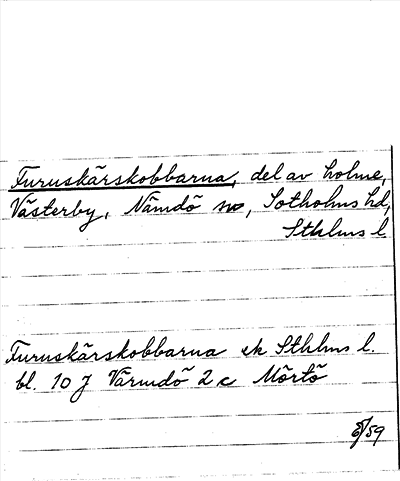 Furuskärskobbarna, del av holme,
Västerby, Nämdö sn, Sotholms hd,
Sthlms l
Furuskärskobbarna ek Sthlms l.
bl. 10 J Värmdö 2 c Mörtö
/59